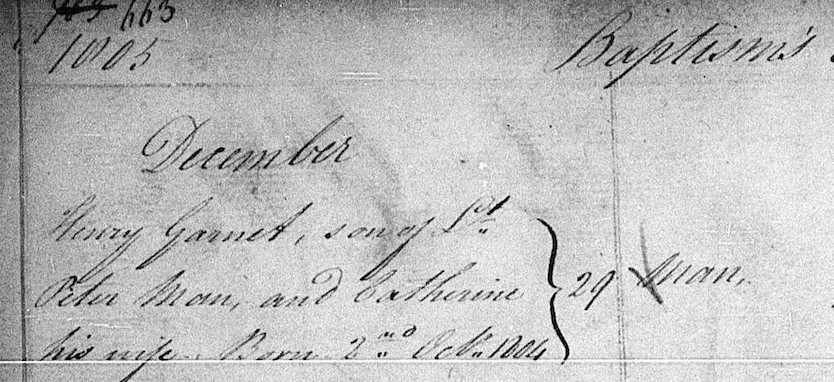 663
1805
Baptisms
December
Henry Garnet, son of Lt.
Peter Man, and Catherine
his wife. Born 2nd Octr. 1804
29
Man,